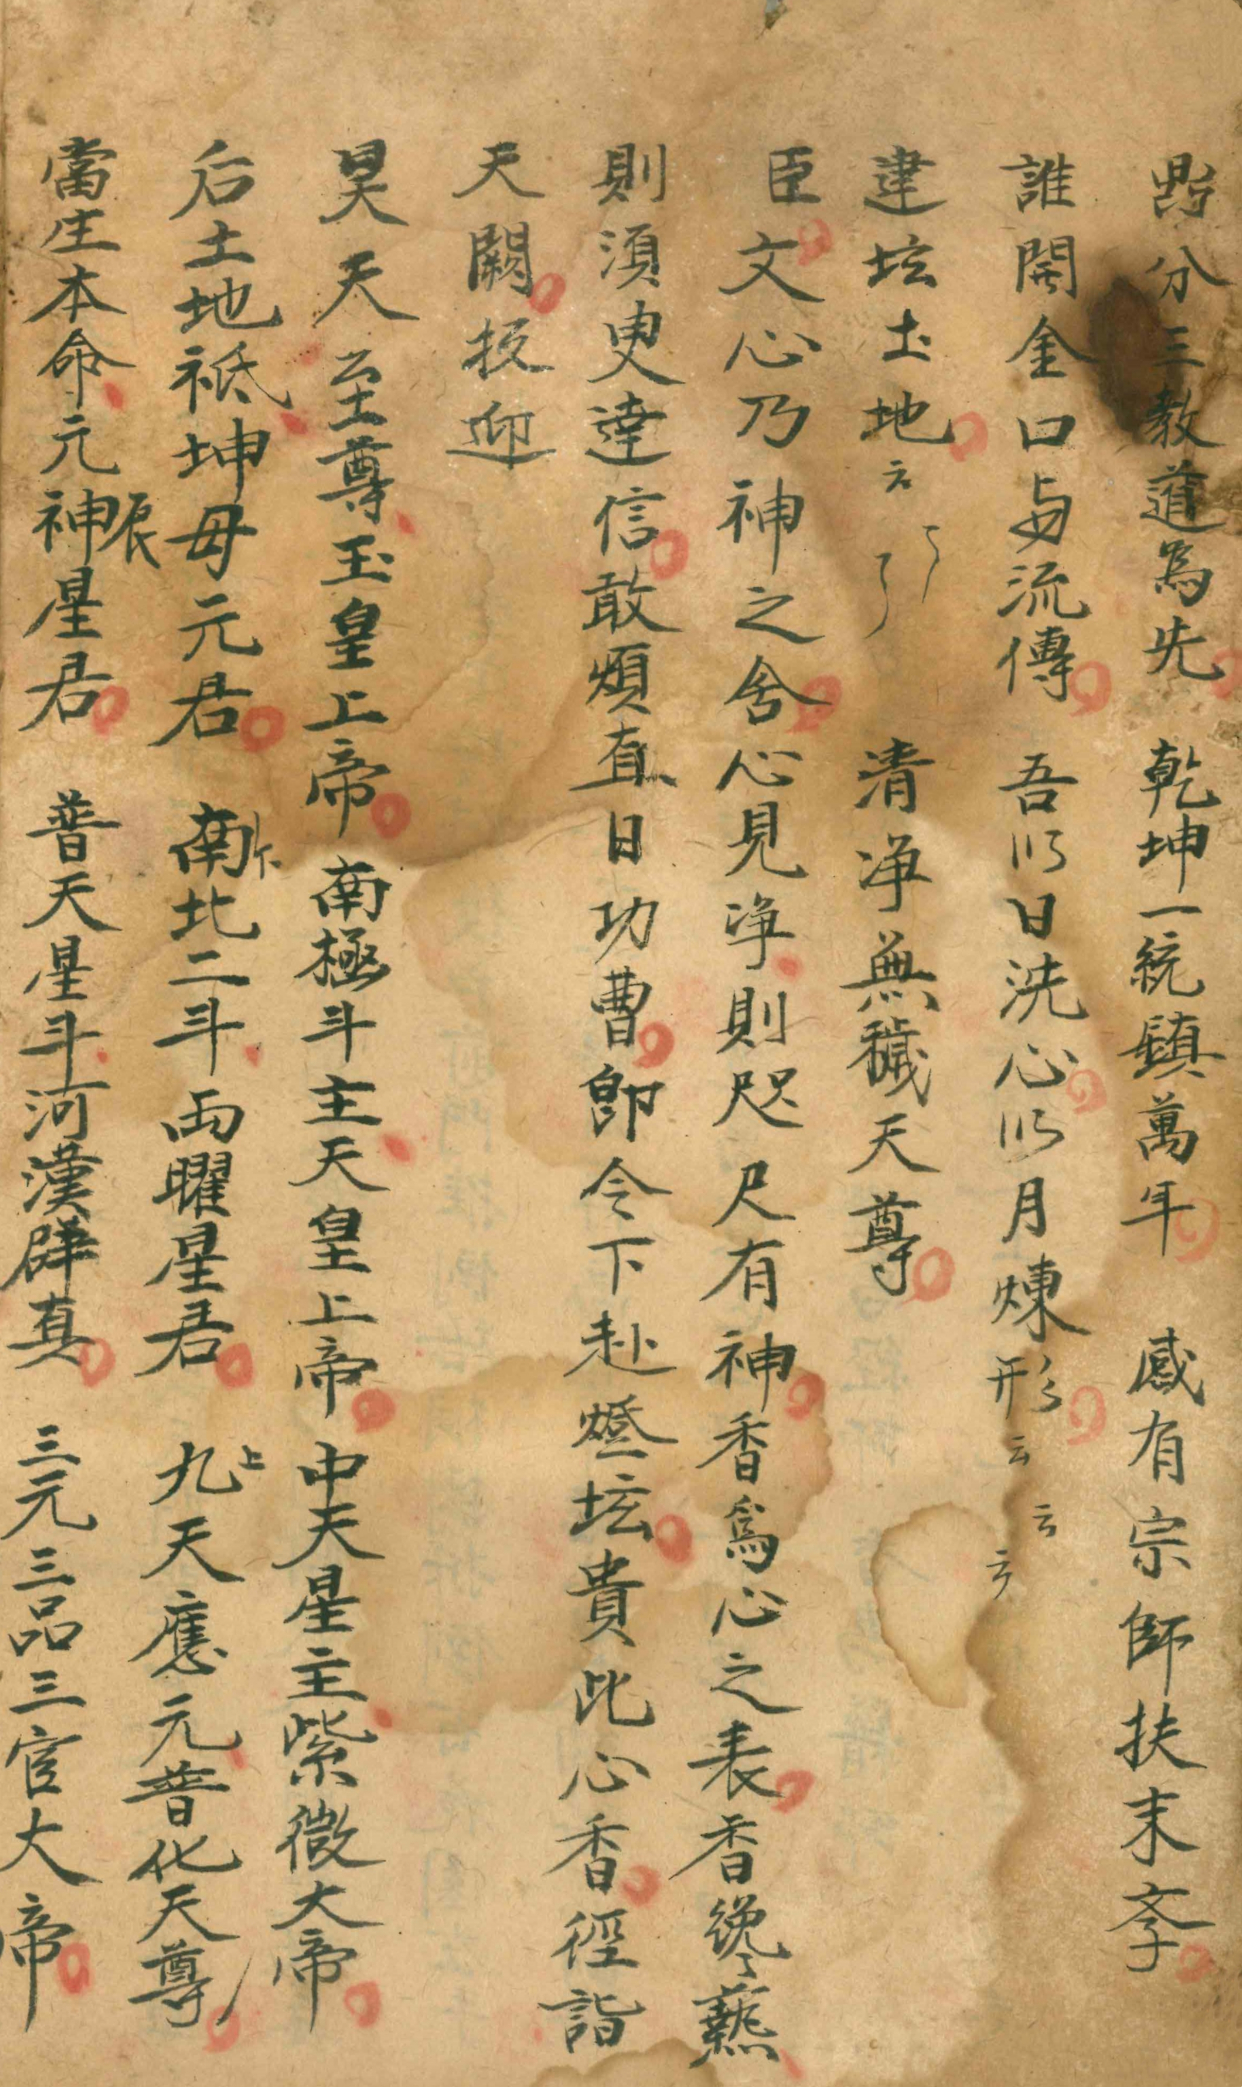 鼎分三教道為先 乾坤一統鎮萬年 感有宗師扶末斈
誰開金口与流傳 吾以日洗心以月煉形云云
建坛土地云 清净無穢天尊
臣文心乃神之舍心見净則咫尺有神香為心之表香纔爇
則須臾達信敢煩直日功曹即今下赴燈坛賫此心香徑詣
天闕扳迎
昊天至尊玉皇上帝 南極斗主天皇上帝 中天星主紫微大帝
后土地祗坤母元君 南北二斗两曜星君 九天應元普化天尊
當生本命元神辰星君 普天星斗河漢群真 三元三品三官大帝